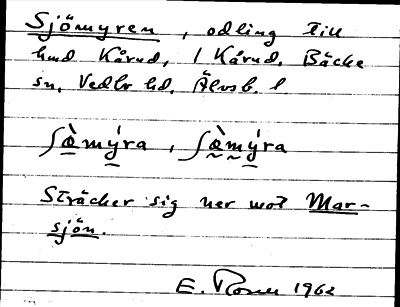 Sjömyren, odling till
hmd Kårud, 1 Kårud, Bäcke
sn, Vedbo hd, Älvsb. l
ʃæ̀mýra, ʃæ̀mýra
Sträcker sig ner mot Mar-
sjön.
E. Rosén 1962